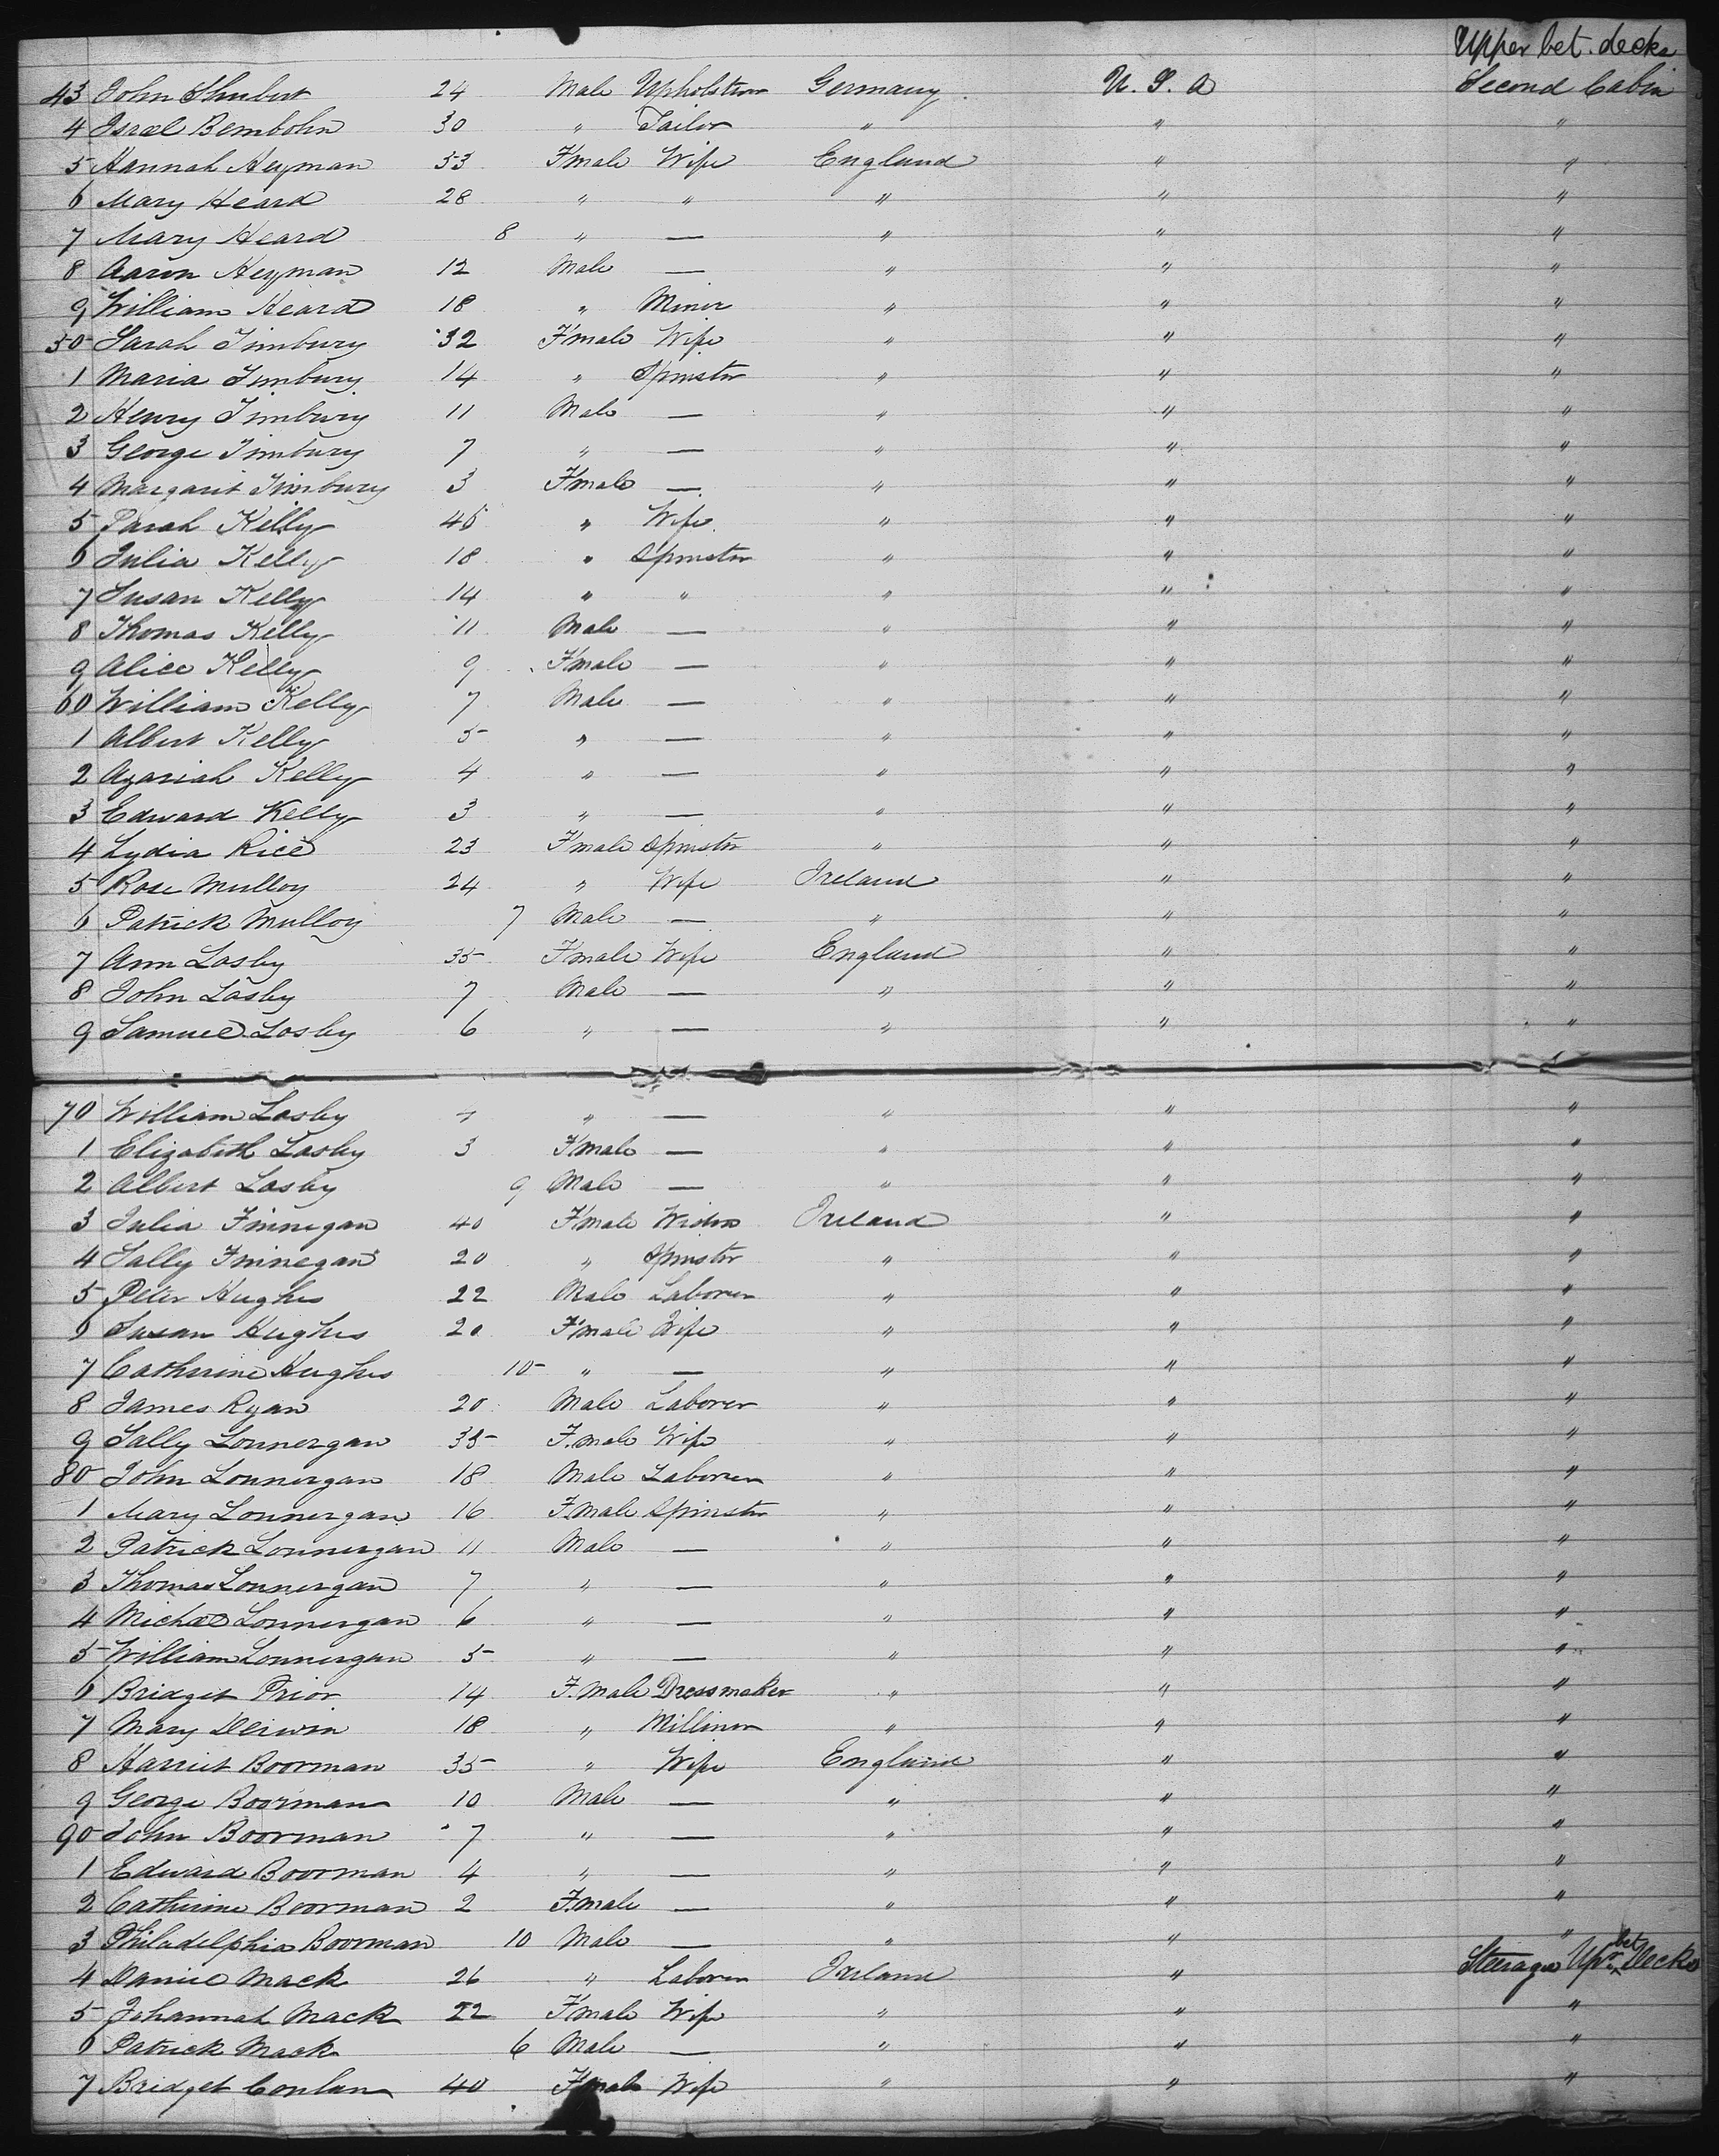 Upper bet. decks
43 John Shubert 24 Male Upholstrer Germany U. S. A Second Cabin
4 Isrel Bembohn 30 " Tailor " " "
5 Hannah Heyman 53 Fmale Wife England " "
6 Mary Heard 28 " " " " "
7 Mary Heard 8 " — " " "
8 Aaron Heyman 12 Male — " " "
9 William Heard 18 " Miner " " "
50 Sarah Timbury 32 Fmale Wife " " "
1 Maria Timbury 14 " Spinster " " "
2 Henry Timbury 11 Male — " " "
3 George Timbury 7 " — " " "
4 Margaret Timbury 3 Fmale — " " "
5 Sarah Kelly 45 " Wife " " "
6 Julia Kelly 18 " Spinster " " "
7 Susan Kelly 14 " " " " "
8 Thomas Kelly 11 Male — " " "
9 Alice Kelly 9 Fmale — " " "
60 William Kelly 7 Male — " " "
1 Albert Kelly 5 " — " " "
2 Azariah Kelly 4 " — " " "
3 Edward Kelly 3 " — " " "
4 Lydia Rice 23 Fmale Spinster " " "
5 Rose Mulloy 24 " Wife Ireland " "
6 Patrick Mulloy 7 Male — " " "
7 Ann Losby 35 Fmale Wife England " "
8 John Losby 7 Male — " " "
9 Samuel Losby 6 " — " " "
70 William Losby " — " " "
1 Elizabeth Losby 3 Fmale — " " "
2 Albert Losby 9 Male — " " "
3 Julia Finnegan 40 Fmale Widow Ireland " "
4 Sally Finnegan 20 " Spinster " " "
5 Peter Hughes 22 Male Laborer " " "
6 Susan Hughes 20 Fmale Wife " " "
7 Catherine Hughes 10 " — " " "
8 James Ryan 20 Male Laborer " " "
9 Sally Lonnergan 35 Fmale Wife " " "
80 John Lonnergan 18 Male Laborer " " "
1 Mary Lonnergan 16 Fmale Spinster " " "
2 Patrick Lonnergan 11 Male — " " "
3 Thomas Lonnergan 7 " — " " "
4 Michael Lonnergan 6 " — " " "
5 William Lonnergan 5 " — " " "
6 Bridget Prior 14 Fmale Dressmaker " " "
7 Mary Derwin 18 " Milliner " " "
8 Harriet Boorman 35 " Wife England " "
9 George Boorman 10 Male — " " "
90 John Boorman 7 " — " " "
1 Edward Boorman 4 " — " " "
2 Catherine Boorman 2 Fmale — " " "
3 Philadelphia Boorman 10 Male — " " "
4 Daniel Mack 26 " Laborer Ireland " Steerage Upr bet Decks
5 Johannah Mack 22 Fmale Wife " " "
6 Patrick Mack 6 Male — " " "
7 Bridget Conlan 40 Fmale Wife " " "